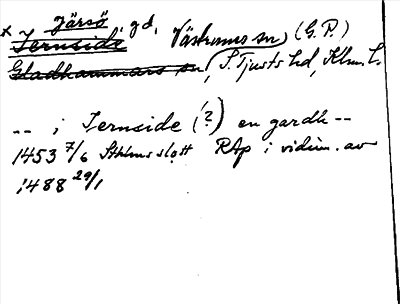 Järsö
x Jernside gd, Västrums sn (G.P.)
Gladhammars sn, S. Tjusts hd, Klm. l.
-- i Jernside (?) en gardh --
1453 7/6 Sthlms slott RAp i vidim. av
1488 29/1